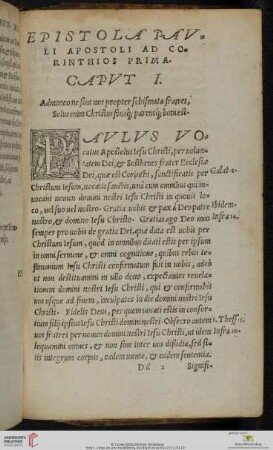 EPISTOLA PAV-
LI APOSTOLI AD CO
RINTHIOS PRIMA.
CAPVT I.
Admoneo ne sint inter vos propter schismata fratres,
Solus enim Christus
PAVLVS VO
catus Apostolus Iesu Christi, per volun
tatem Dei, & Sosthenes frater Ecclesiæ
Dei, quæ est Corinthi, sanctificatis per Galat.1
Christum Iesum, vocatis sanctis, unà cum omnibus qui in-
vocant nomen domini nostri Iesu Christi in quouis lo-
co, uel suo uel nostro. Gratia uobis & pax à Deo patre Ibidem.
nostro, & domino Iesu Christo. Gratias ago Deo meo Infra 14.
semper pro uobis de gratia Dei, quæ data est uobis per
Christum Iesum, quòd in omnibus ditati estis per ipsum
in omni sermone, & omni cognitione, quibus rebus te-
stimonium Iesu Christi confirmatum fuit in uobis, adeò
ut non destituamini in ullo dono, expectantes reuela-
tionem domini nostri Iesu Christi, qui & confirmabit
uos usque ad finem, inculpatos in die domini nostri Iesu
Christi. Fidelis Deus, per quem uocati estis in consor-
tium filij ipsius Iesu Christi domini nostri. Obsecro autem 1. Thess.5.
uos fratres per nomen domini nostri Iesu Christi, ut idem Infra
loquamini omnes, & non sint inter uos dissidia, sed si-
tis integrum corpus, eadem mente, & eadem sententia.
D d 2 Signifi-
© Universitätsbibliothek Heidelberg